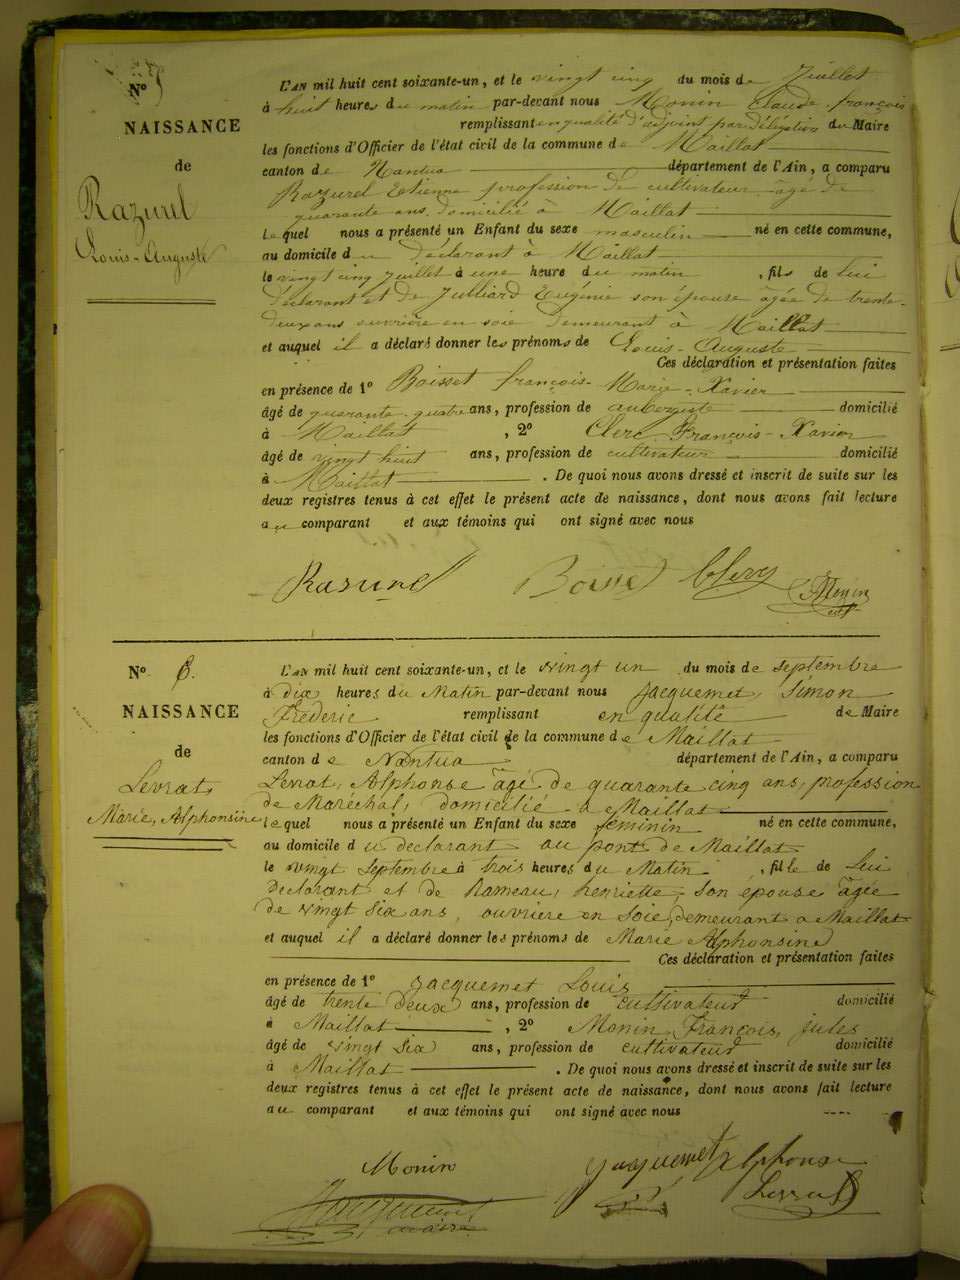 N° 5
NAISSANCE
de
Razurel
Louis-Auguste
L'AN mil huit cent soixante-un, et le vingt cinq du mois de Juillet
à huit heures du matin par-devant nous Monin Claude françois
remplissant en qualité d'adjoint par délégation du Maire
les fonctions d'Officier de l'état civil de la commune de Maillat
canton de Nantua département de l'Ain, a comparu
Razurel Etienne profession de cultivateur agé de
quarante ans, domicilié à Maillat
lequel nous a présenté un Enfant du sexe masculin né en cette commune,
au domicile du déclarant à Maillat
le vingt cinq Juillet à une heure du matin, fils de lui
déclarant et de Julliard Eugénie son épouse âgée de trente-
deux ans ouvrière en soie demeurant à Maillat
et auquel il a déclaré donner les prénoms de Louis-Auguste
Ces déclaration et présentation faites
en présence de 1° Boisset françois-Marie-Xavier
âgé de quarante-quatre ans, profession de aubergiste domicilié
à Maillat, 2° Clerc François-Xavier
âgé de vingt huit ans, profession de cultivateur domicilié
à Maillat. De quoi nous avons dressé et inscrit de suite sur les
deux registres tenus à cet effet le présent acte de naissance, dont nous avons fait lecture
au comparant et aux témoins qui ont signé avec nous
Rasurel Boisset Clerc Monin
N° 6.
NAISSANCE
de
Levrat,
Marie, Alphonsine
L'AN mil huit cent soixante-un, et le vingt un du mois de septembre
à dix heures du Matin par-devant nous Jacquemet, Simon
Frédéric remplissant en qualité de Maire
les fonctions d'Officier de l'état civil de la commune de Maillat
canton de Nantua département de l'Ain, a comparu
Levrat, Alphonse âgé de quarante cinq ans, profession
de Maréchal, domicilié à Maillat
lequel nous a présenté un Enfant du sexe féminin né en cette commune,
au domicile du declarant au pont de Maillat
le vingt Septembre à trois heures du Matin, fille de lui
declarant et de Rameau, henriette, son épouse âgée
de vingt six ans, ouvriere en soie, demeurant a Maillat
et auquel il a déclaré donner les prénoms de Marie Alphonsine
Ces déclaration et présentation faites
en présence de 1° Jacquemet Louis
âgé de trente deux ans, profession de cultivateur domicilié
à Maillat, 2° Monin François, jules
âgé de vingt six ans, profession de cultivateur domicilié
à Maillat. De quoi nous avons dressé et inscrit de suite sur les
deux registres tenus à cet effet le présent acte de naissance, dont nous avons fait lecture
au comparant et aux témoins qui ont signé avec nous
Monin Jacquemet Alphonse
Jacquemet Levrat
maire